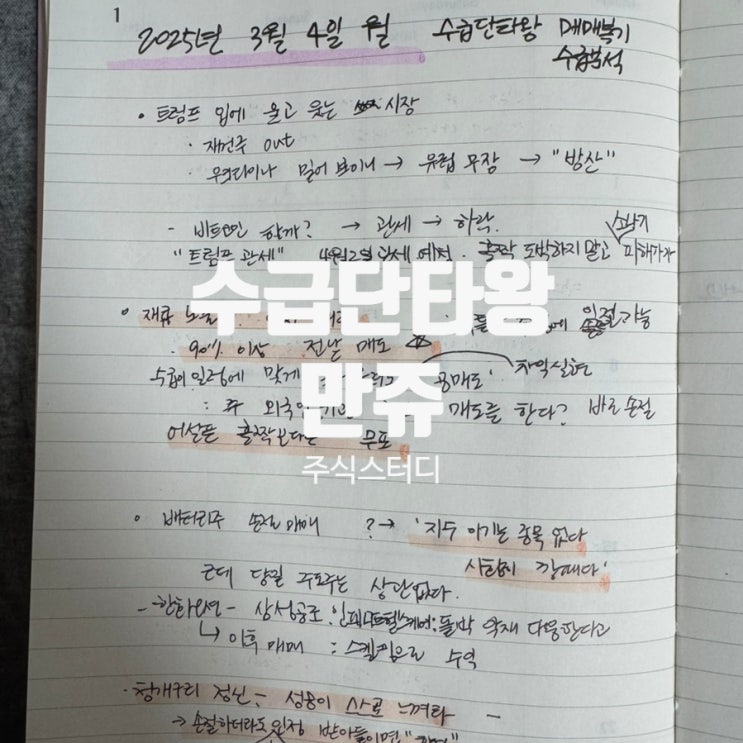 1
2025년 3월 4일 월 수급단타왕 매매복기
수급분석
• 트럼프 입에 울고 웃는 시장
· 재건주 out
· 우크라이나 밀어 보이니 → 유럽 무장 → "방산"
- 비트맨 할까? → 관세 → 하락.
"트럼프 관세" 4월2일 관세 예정. 홀짝 도박하지말고 피해가자
수급단타왕
재료 노출
90% 이상 전날 매도
수급이 일정에 맞게 공매도 차익실현
: 주 외국인 기관 매도를 한다? 바로 손절
어설픈 홀짝보다는 무포
만쥬
주식스터디
• 배터리주 손절매매 ? → '지수 이기는 종목 없다
시황이 깡패다'
근데 당일 주도주는 상관없다.
- 한화오션 - 삼성공조 돌박 악재 다중한다고
↳ 이후 매매 : 스켈핑으로 수익
· 청개구리 정신 - 성공이 스스로 느껴라 -
→ 손절하더라도 인정 받아들이면